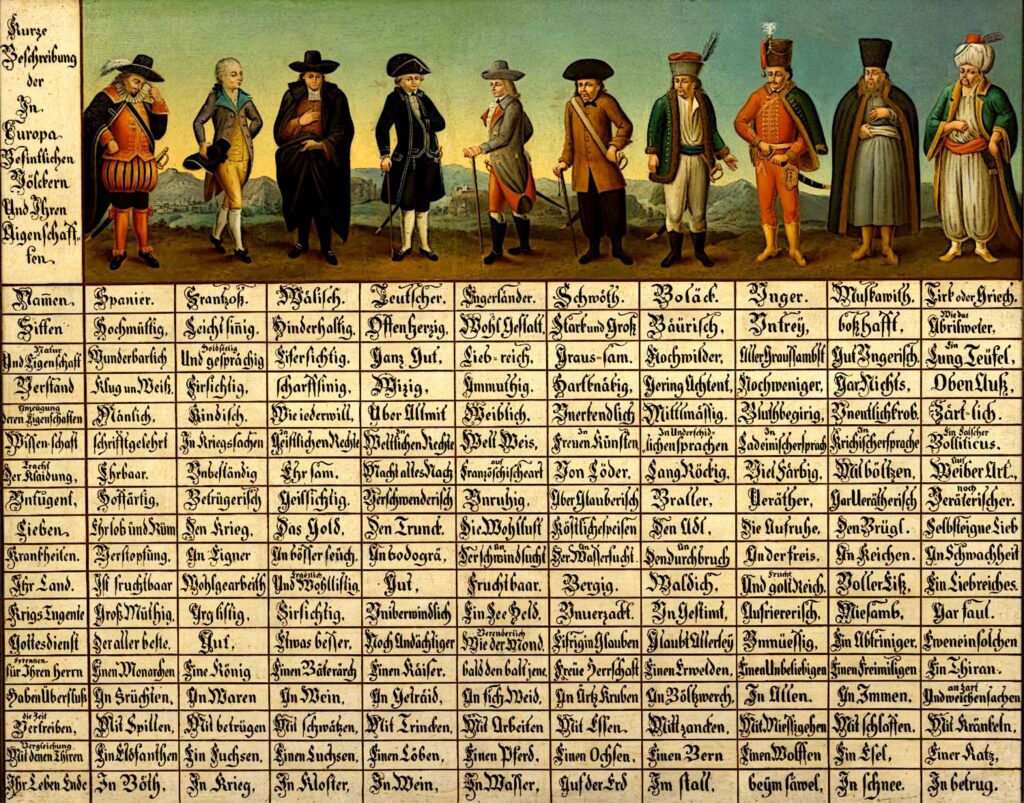 Kurze
Beschreibung
der
In
Europa
Befintlichen
Völckern
Und Ihren
Aigenschaff-
ten
Namen Spanier. Frantzoß. Wälisch. Teutscher. Engerländer. Schwöth. Boläck. Unger. Muskawith. Tirk oder Griech.
Sitten Hochmüttig, Leichtsinig. Hinderhaltig. Offenherzig, Wohl Gestalt, Stark und Groß Bäurisch, Untrey, boßhafft, Wie das Abrilweter.
Natur Und Eigenschaft Wunderbarlich Holdseelig Und gesprächig Eifersichtig. Ganz Gut, Lieb-reich, Graus-sam, Nochwilder, Aller Graussambst Gut Ungerisch, Ein Lung Teüfel,
Verstand Klug un Weiß. Firsichtig, scharffsinig, Wizig, Ammuthig, Hartknäbig, Gering Achtent, Nochweniger, Gar Nichts, Oben Auß,
Anzeügung deren Eigenschaften Mänlich, Kindisch, Wie iederwill, Über Allmit Weiblich, Unerkendlich Mittlmässig, Bluthbegirig, Unentlichkrob, Zärt-lich.
Wissenschaft schrifftgelehrt In Kriegssachen In Geistlichen Rechte In Weltlichen Rechte Welt Weis, In Freuen Künsten In Underschidlichensprachen In Ladeinischersprach In Krichischersprache Ein Falscher Bolliticus.
Tracht Der Klaidung, Ehrbaar. Unbeständig Ehrsam, Macht alles Nach auf Französchischeart Von Löder, Lang Röckig, Viel Färbig, Mit böltzen, Auf Weiber Art,
Untugent, Hoffärtig, Betrügerisch Geillsichtig, Verschwenderisch Unruhig, Aber Glauberisch Braller, Veräther, Gar Verätherisch noch Veräterischer.
Lieben Ehrlob und Rüm Den Krieg, Das Gold, Den Trunck, Die Wohllust Köstlichespeisen Den Adl, Die Aufruhe, Den Brügl, Selbsteigne Lieb
Krankheiten. Verstopfung, An Eigner An bösser seüch, An bodogrä, An Der schwindsucht An Der Wassersucht An Den durchbruch An der freis, An Keichen, An Schwachheit
Ihr Land. Ist fruchtbaar Wohlgearbeith Ergötzlich Und Wohllistig Gut, Fruchtbaar. Bergig, Waldich, Frucht Und goltt Reich. Voller Eiß, Ein Liebreiches
Krigs Tugente Groß Müthig, Arg listig, Firsichtig, Unüberwindlich Ein See Held, Unuerzackt Un Gestimt, Aufriererisch, Miesamb, Gar faul.
Gottesdienst Der aller beste. Gut, Etwas besser, Noch Andächtiger Veränderlich Wie der Mond, Eifrig in Glauben Glaubt Allerley Unmüessig, Ein Abtriniger, Eweneinsolchen
Erkennen für Ihren Herrn Einen Monarchen Eine König Einen Bäterärch Einen Käiser, bald den balt jene, Freüe Herrschaft Einen Erwelden, Einen Unbeliebigen Einen Freimiligen Ein Thiran.
Haben Überfluß An Früchten, An Waren An Wein, An Getraid, An fich Weid, An Ärtz Kruben An Böltzwerch, In Allen, An Immen, an Zart Und weichensachen
die Zeit Vertreiben, Mit Spillen, Mit betrügen Mit schwätzen, Mit Trincken, Mit Arbeiten Mit Essen, Mit zancken, Mit Miessigehen Mit schlaffen, Mit Kränkeln,
Vergleichung Mit denen Thiren Ein Elofanthen Ein Fuchsen, Einen Luchsen, Einen Löben, Einen Pferd, Einen Ochsen, Einen Bern Einen Wolffen Ein Esel, Einer Katz,
Ihr Leben Ende In Böth, In Krieg, In Kloster, In Wein, In Wasser, Auf der Erd Im stall, beym säwel, In schnee, In betrug.